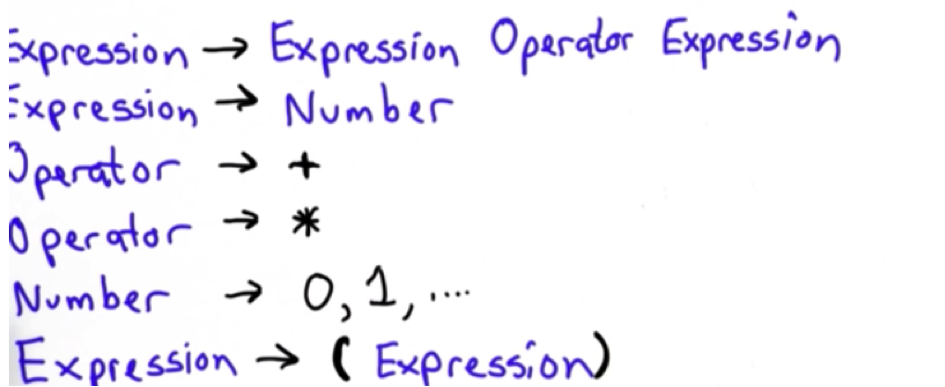 Expression → Expression Operator Expression
Expression → Number
Operator → +
Operator → *
Number → 0, 1, ....
Expression → ( Expression)